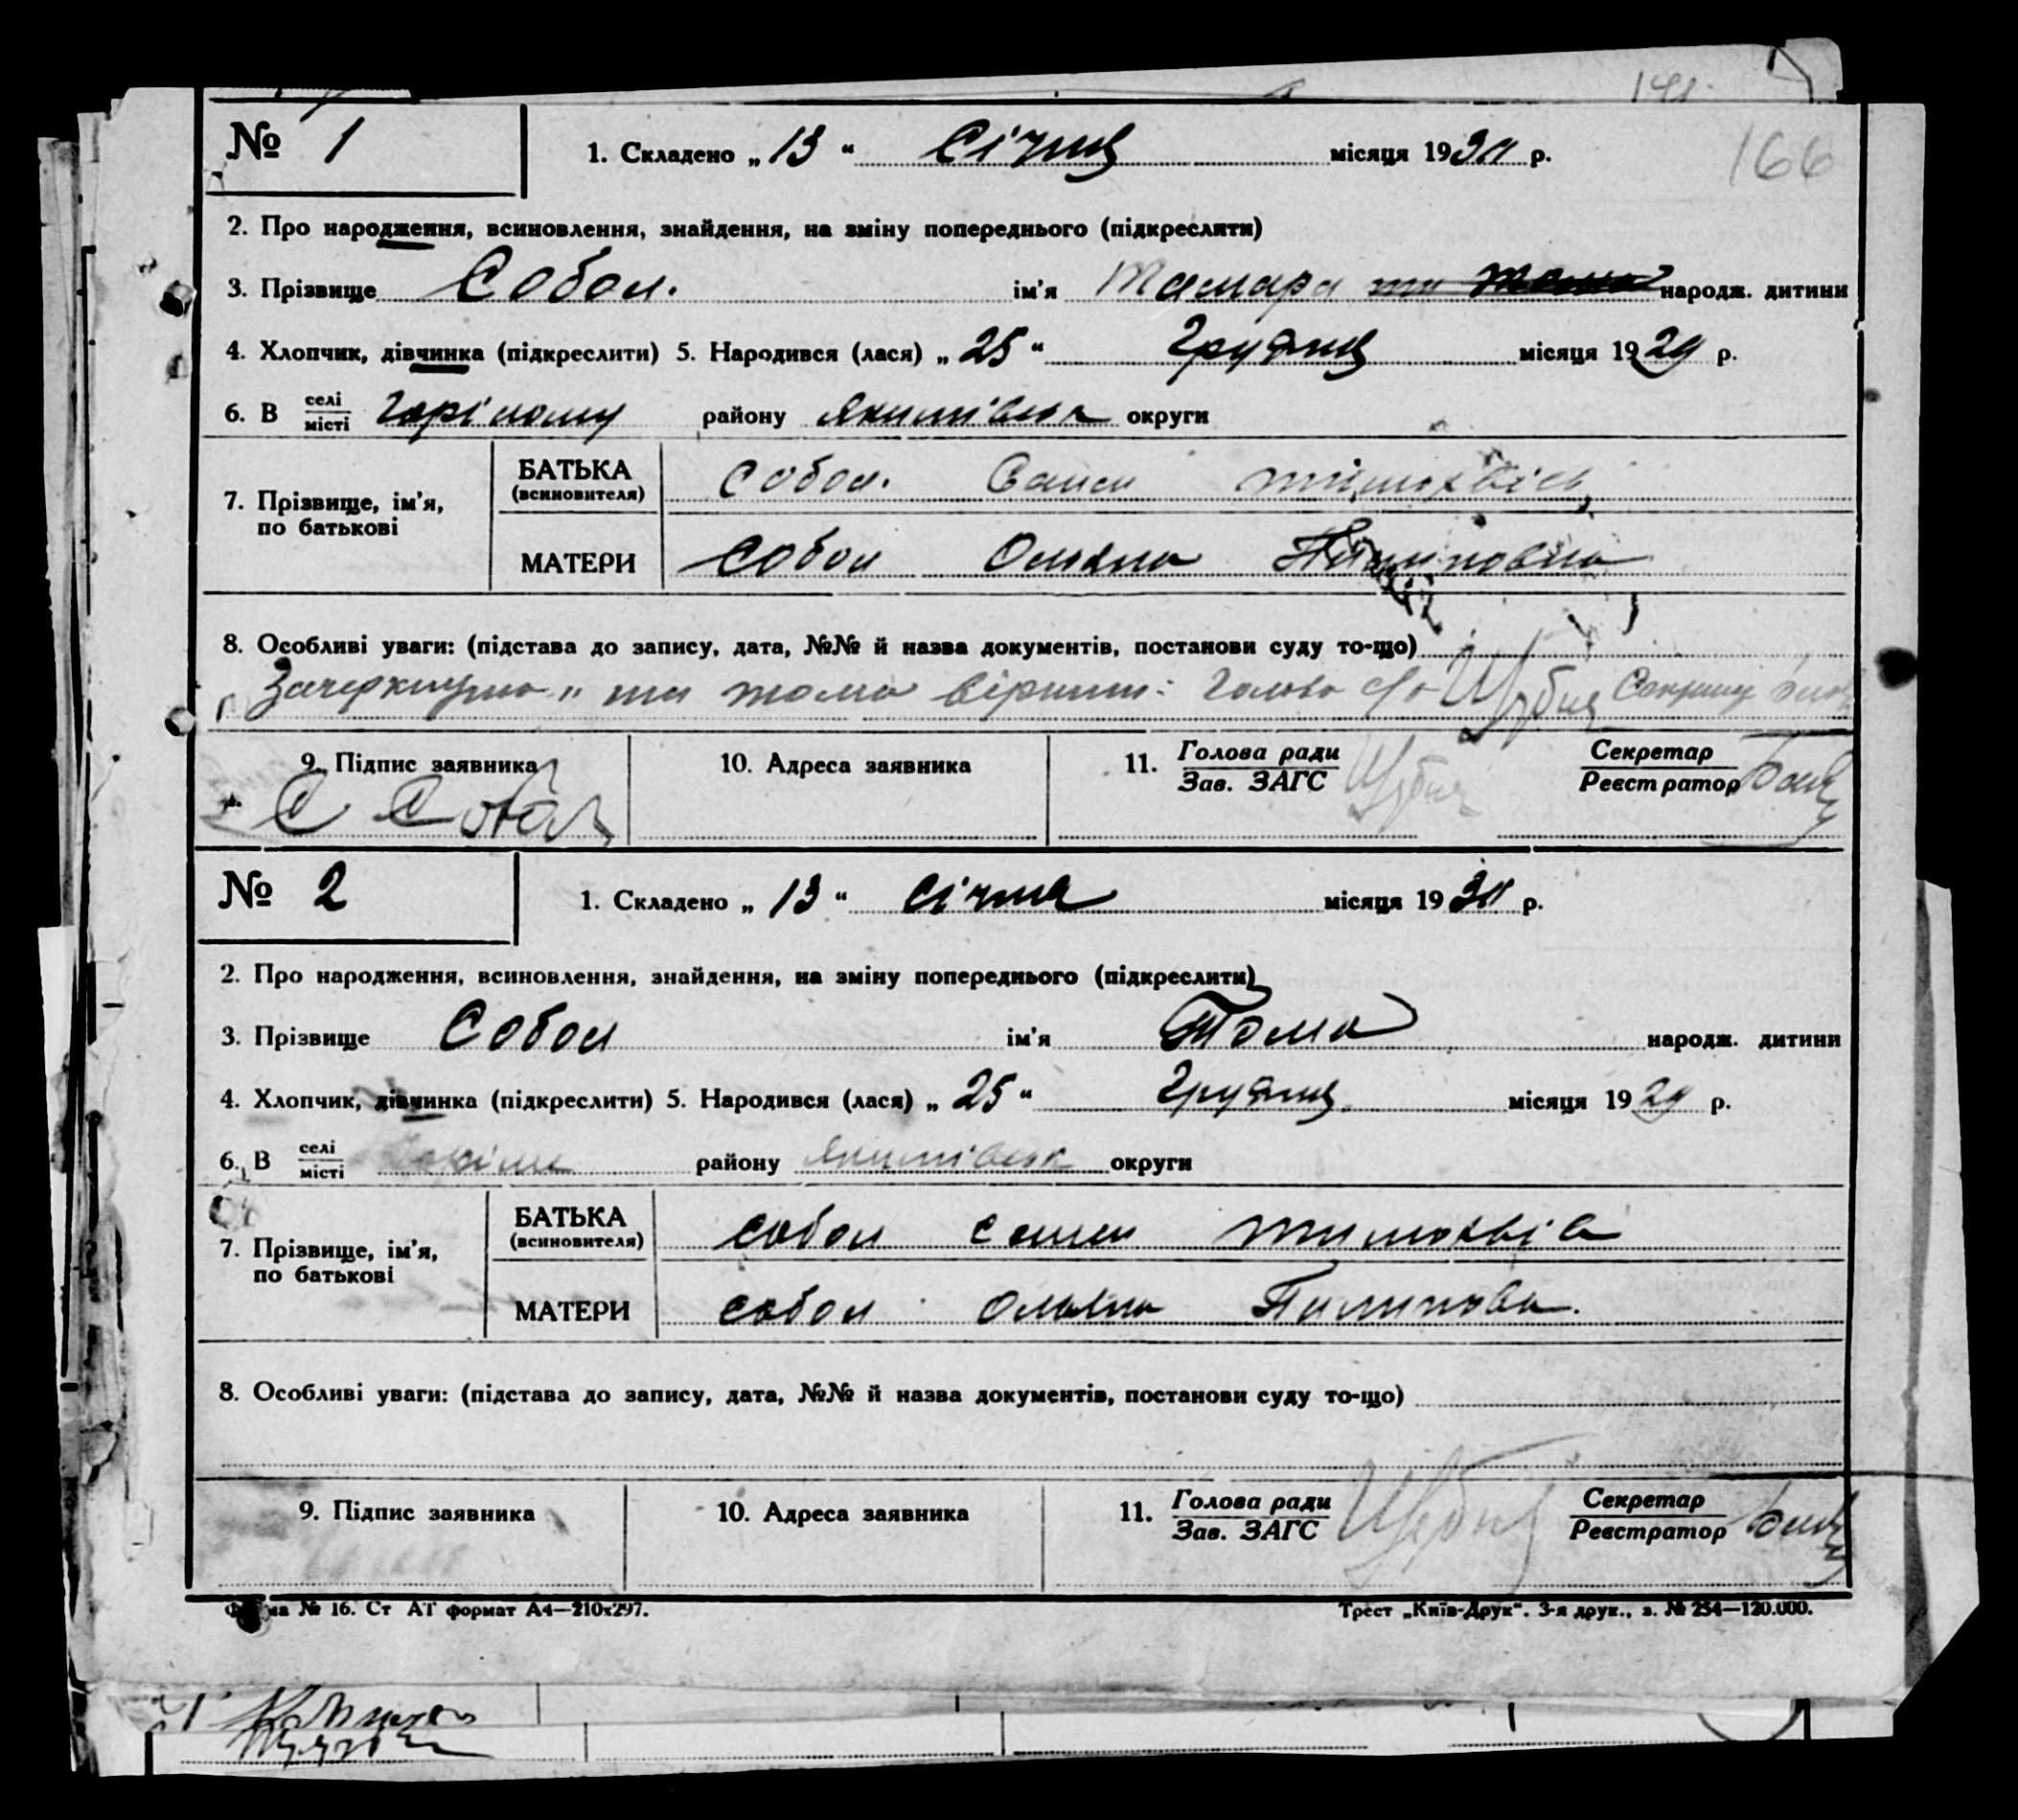 141.
166
№ 1
1. Складено „ 13 “ Січня місяця 1930 р.
2. Про народження, всиновлення, знайдення, на зміну попереднього (підкреслити)
3. Прізвище Собол. ім'я Тамара та Тома народж. дитини
4. Хлопчик, дівчинка (підкреслити) 5. Народився (лася) „ 25 “ Грудня місяця 1929 р.
6. В селі/місті районy округи
7. Прізвище, ім'я, по батькові
БАТЬКА (всиновителя) Собол.
МАТЕРИ Собол Оляна
8. Особливі уваги: (підстава до запису, дата, №№ й назва документів, постанови суду то-що)
Зачеркнуто „ та тома вірити: Голова с/р
9. Підпис заявника
С Собол
10. Адреса заявника
11. Голова ради/Зав. ЗАГС
Секретар/Реєстратор
№ 2
1. Складено „ 13 “ січня місяця 1930 р.
2. Про народження, всиновлення, знайдення, на зміну попереднього (підкреслити)
3. Прізвище Собол ім'я Тома народж. дитини
4. Хлопчик, дівчинка (підкреслити) 5. Народився (лася) „ 25 “ Грудня місяця 1929 р.
6. В селі/місті району округи
7. Прізвище, ім'я, по батькові
БАТЬКА (всиновителя) собол семен
МАТЕРИ собол Оляна
8. Особливі уваги: (підстава до запису, дата, №№ й назва документів, постанови суду то-що)
9. Підпис заявника
10. Адреса заявника
11. Голова ради/Зав. ЗАГС
Секретар/Реєстратор
Форма № 16. Ст АТ формат А4—210х297.
Трест „Київ-Друк“. 3-я друк., з. № 254—120.000.